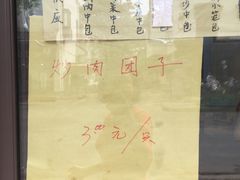 供应
肉中包
菜中包
中包
沙中包
小笼包
炒肉团子
3.00元/只